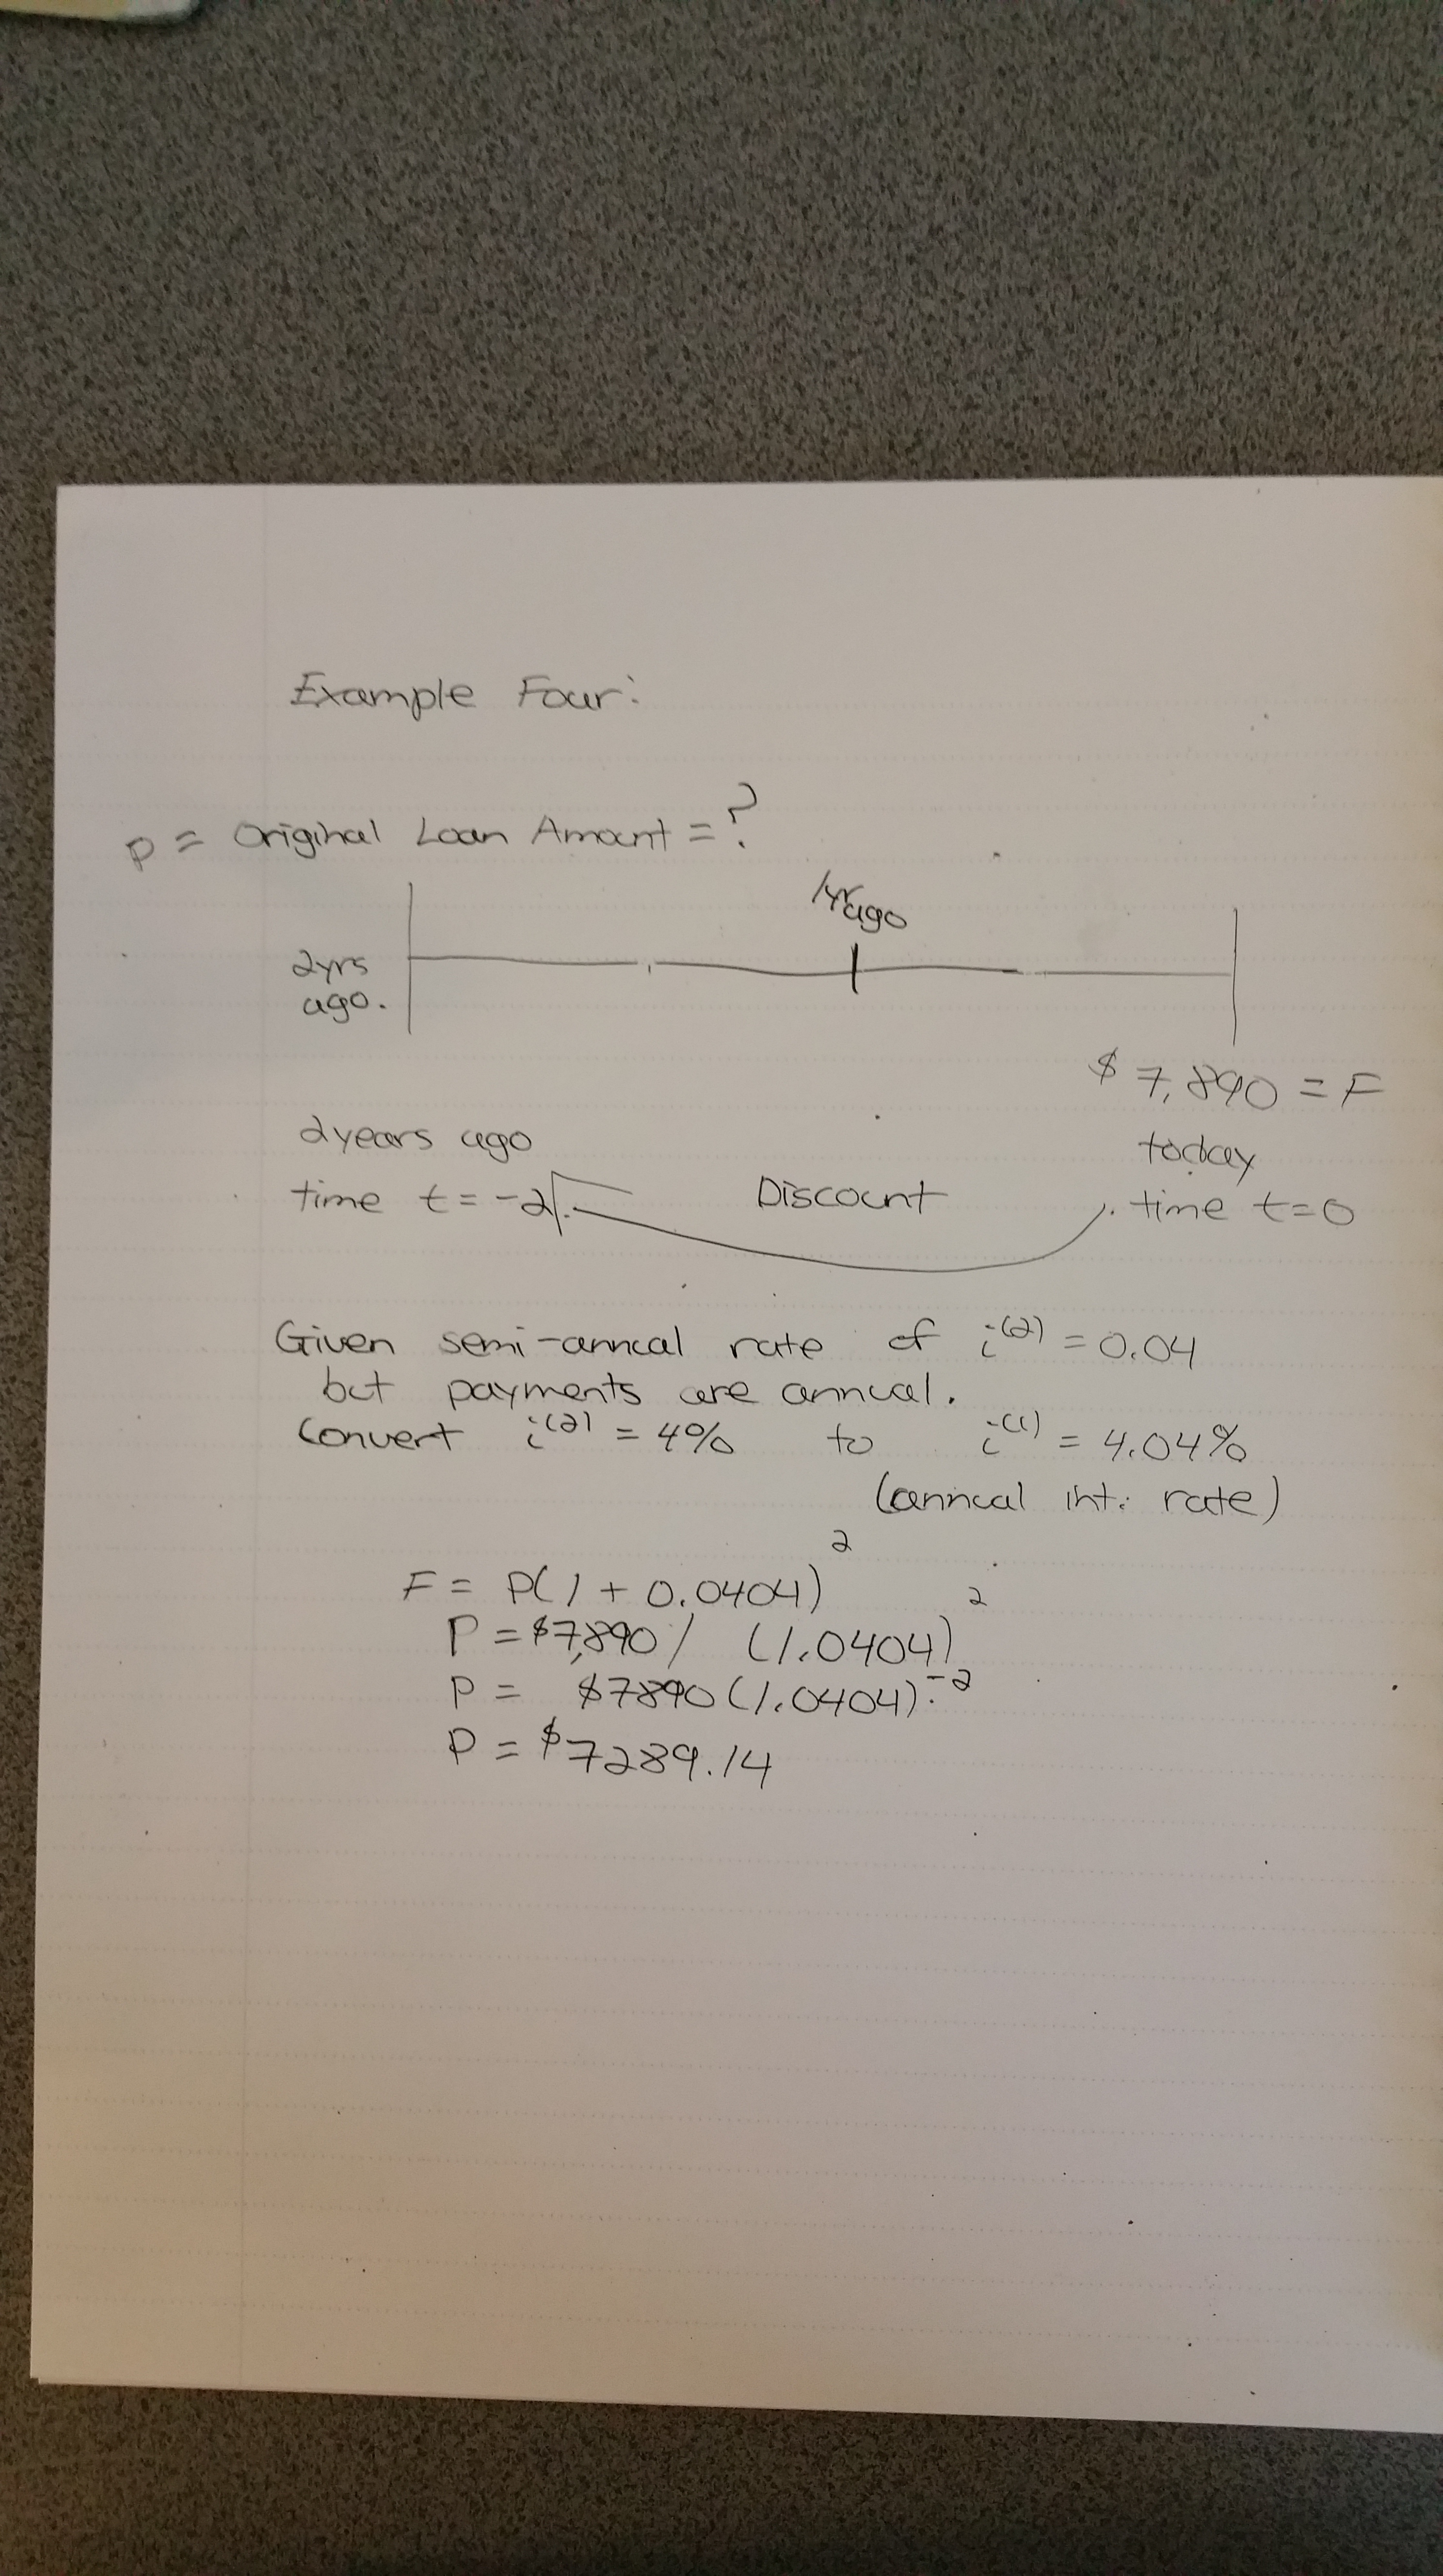 Example Four:
P = Original Loan Amount = ?
1yr ago
2yrs
ago.
$7,890 = F
today
time t=0
2years ago
time t=-2
Discount
Given semi-annual rate of i^(2) = 0.04
but payments are annual.
Convert i^(2) = 4% to i^(1) = 4.04%
(annual int. rate)
F = P(1 + 0.0404)^2
P = $7,890 / (1.0404)^2
P = $7890(1.0404)^-2
P = $7289.14